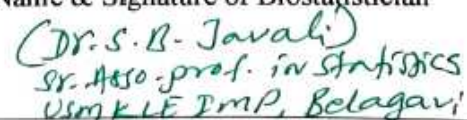 Name & Signature of Biostatistician
(Dr. S. B. Javali)
Sr. Asso. prof. in Statistics
USM KLE IMP, Belagavi